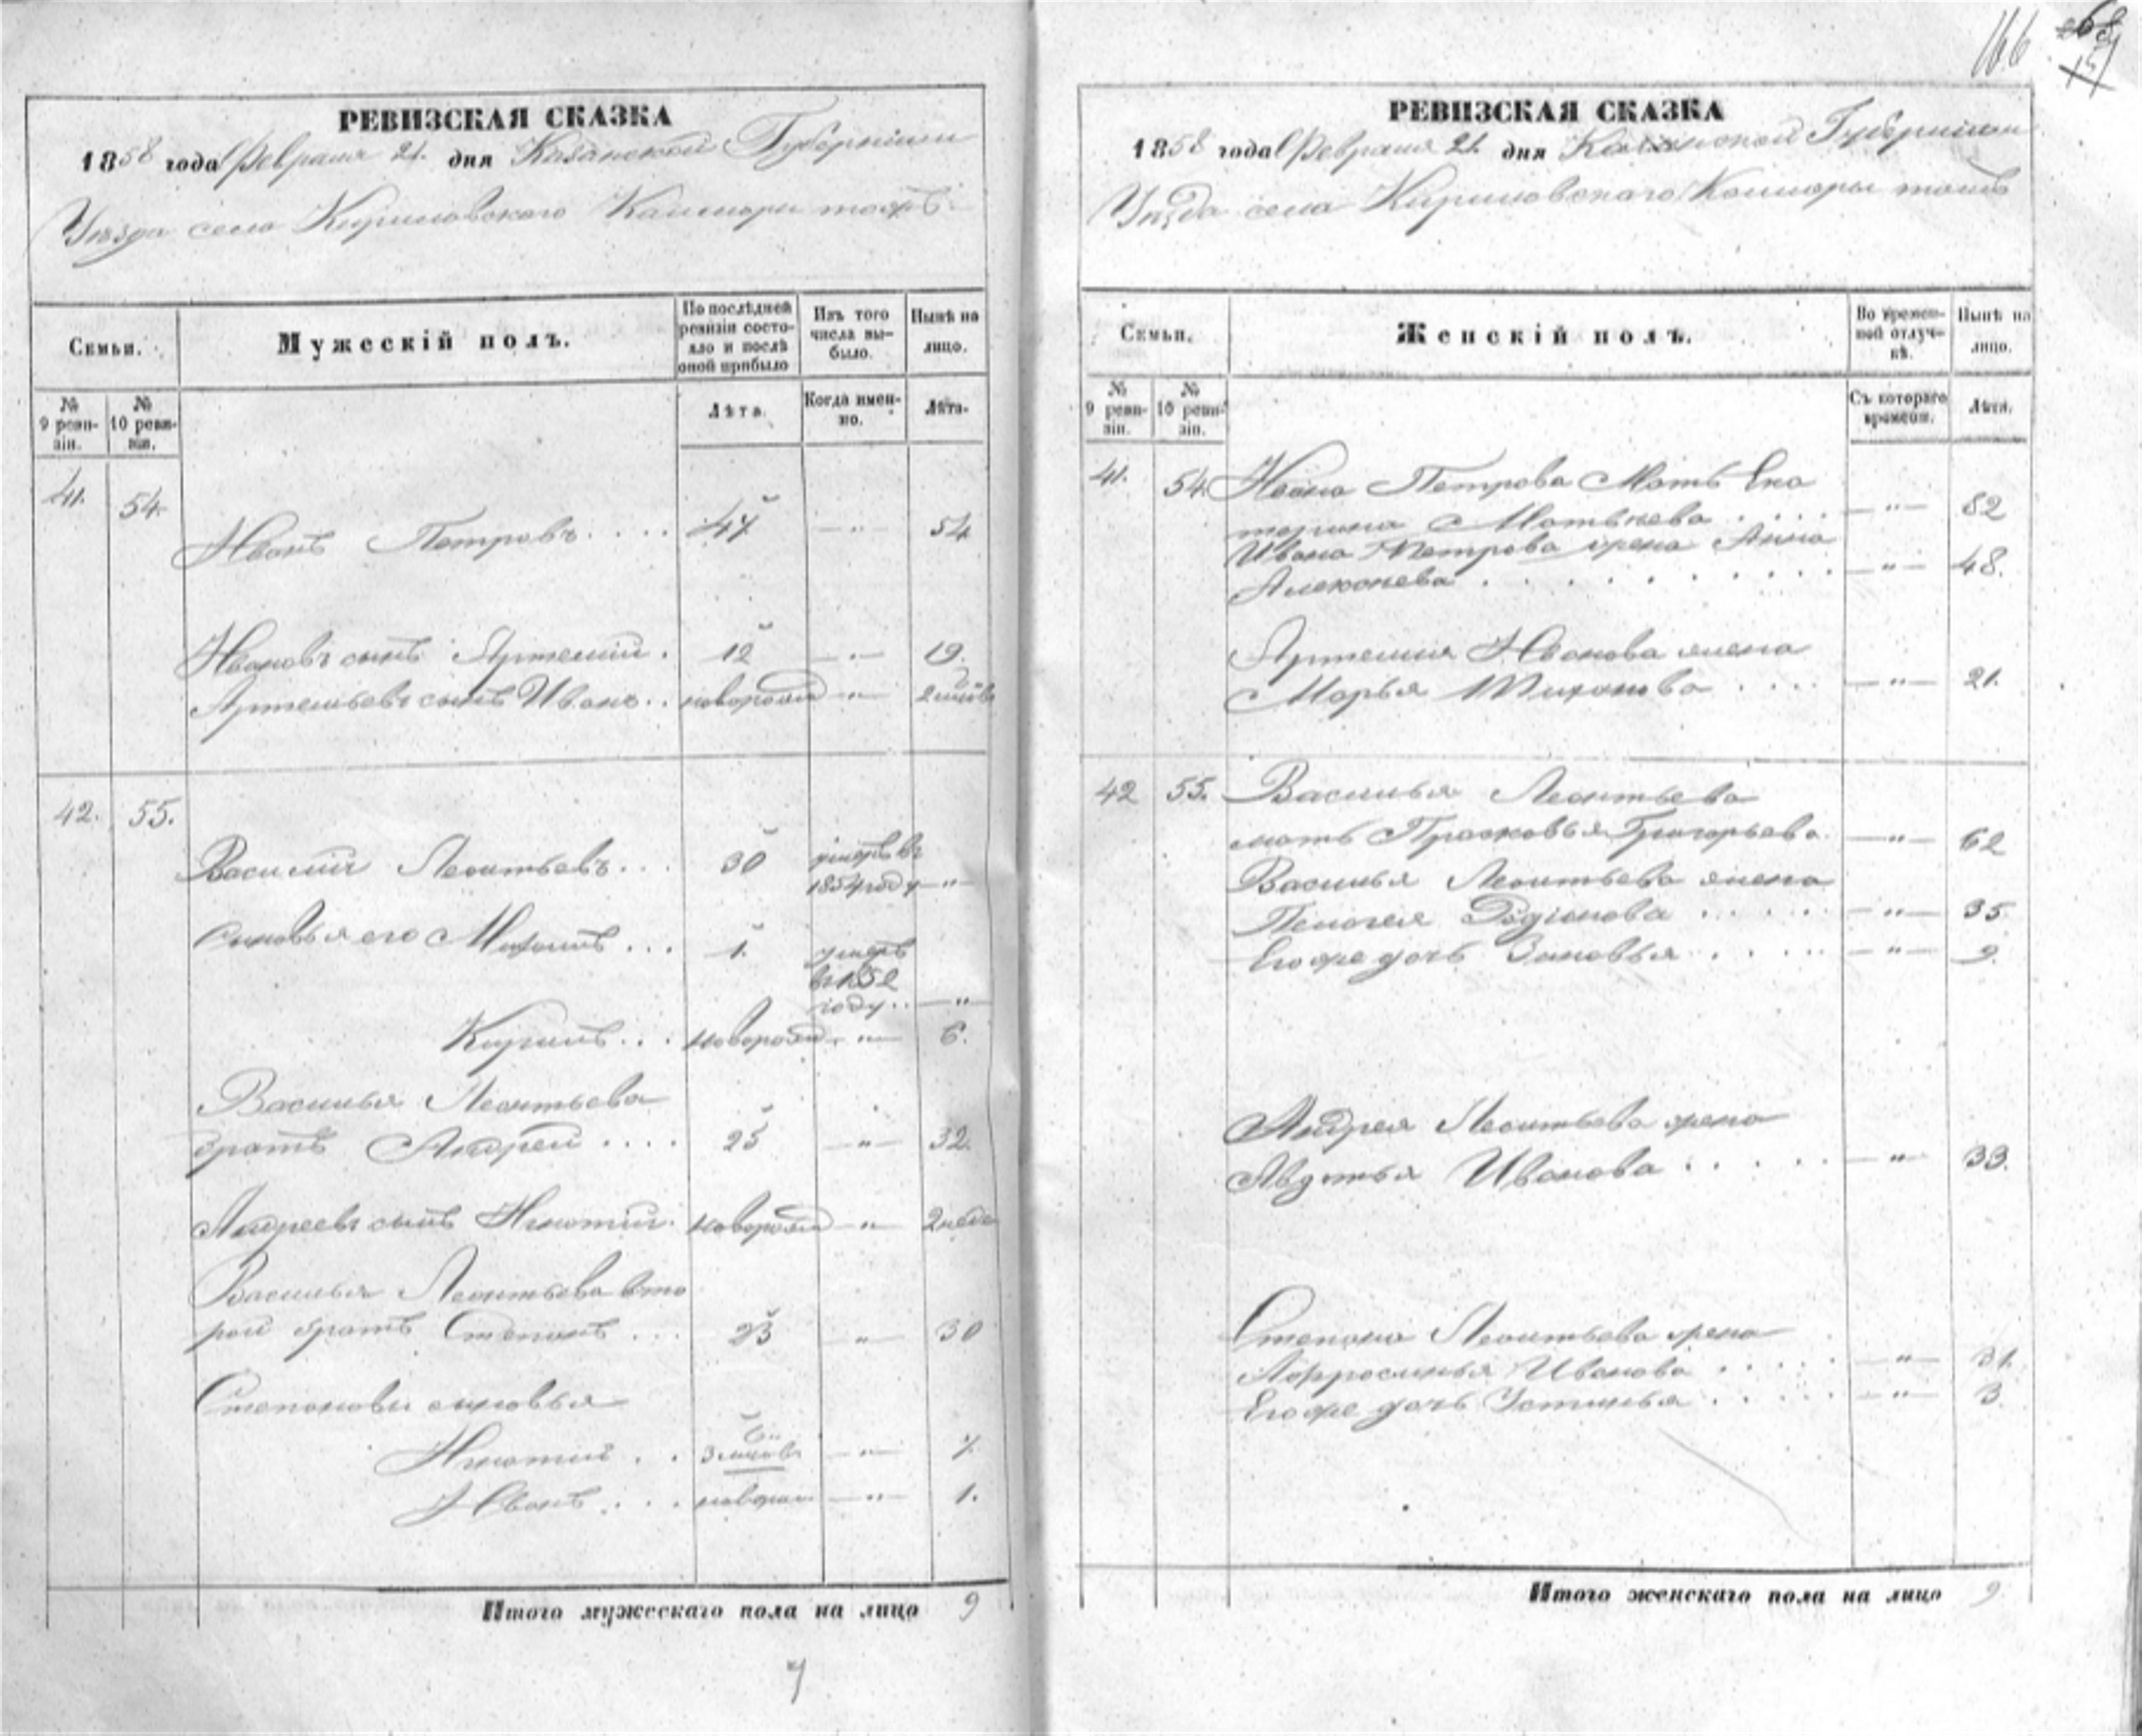 166
РЕВИЗСКАЯ СКАЗКА
1858 года Февраля 21. дня Казанской Губернии
Уѣзда села Кириловскаго тожъ
Семьи.
Мужескій полъ.
По послѣдней ревизіи состо-
яло и послѣ
оной прибыло
Изъ того
числа вы-
было.
Нынѣ на
лицо.
№
9 реви-
зіи.
№
10 реви-
зіи.
Лѣта.
Когда имен-
но.
Лѣта.
41. 54.
Иванъ Петровъ.... 47 —"— 54
Ивановъ сынъ Артемій. 12 —"— 19.
Артемьевъ сынъ Иванъ.. новорожд —"— 2
42. 55.
Василій Леонтьевъ... 30 умеръ въ
1854 году —"—
Сыновья его ... 1. умеръ
въ 1852
году.. —"—
... новорожд —"— 6.
Василья Леонтьева
братъ Андрей.... 25 —"— 32.
Андреевъ сынъ Игнатій. новорожд —"— 2 неде
Василья Леонтьева вто
рой братъ Степанъ... 23 —"— 30
Степановы сыновья
Игнатій.. 3 —"— 7
Иванъ... новорож —"— 1.
Итого мужескаго пола на лицо 9
РЕВИЗСКАЯ СКАЗКА
1858 года Февраля 21. дня Казанской Губернии
Уѣзда села Кириловскаго тожъ
Семьи.
Женскій полъ.
Во времен-
ной отлуч-
кѣ.
Нынѣ на
лицо.
№
9 реви-
зіи.
№
10 реви-
зіи.
Съ котораго
времени.
Лѣта.
41. 54. Ивана Петрова Мать Ека
терина Матвѣева.... —"— 82
Ивана Петрова жена Анна
Алексѣева......... —"— 48.
Артемия Иванова жена
Марья Тихонова.... —"— 21.
42 55. Василья Леонтьева
мать Прасковья Григорьева. —"— 62
Василья Леонтьева жена
Пелагея Родіонова..... —"— 35
Его же дочь Зиновья..... —"— 9.
Андрея Леонтьева жена
Авдотья Иванова..... —"— 33.
Степана Леонтьева жена
Афросинья Иванова..... —"— 31.
Его же дочь Устинья..... —"— 3.
Итого женскаго пола на лицо 9